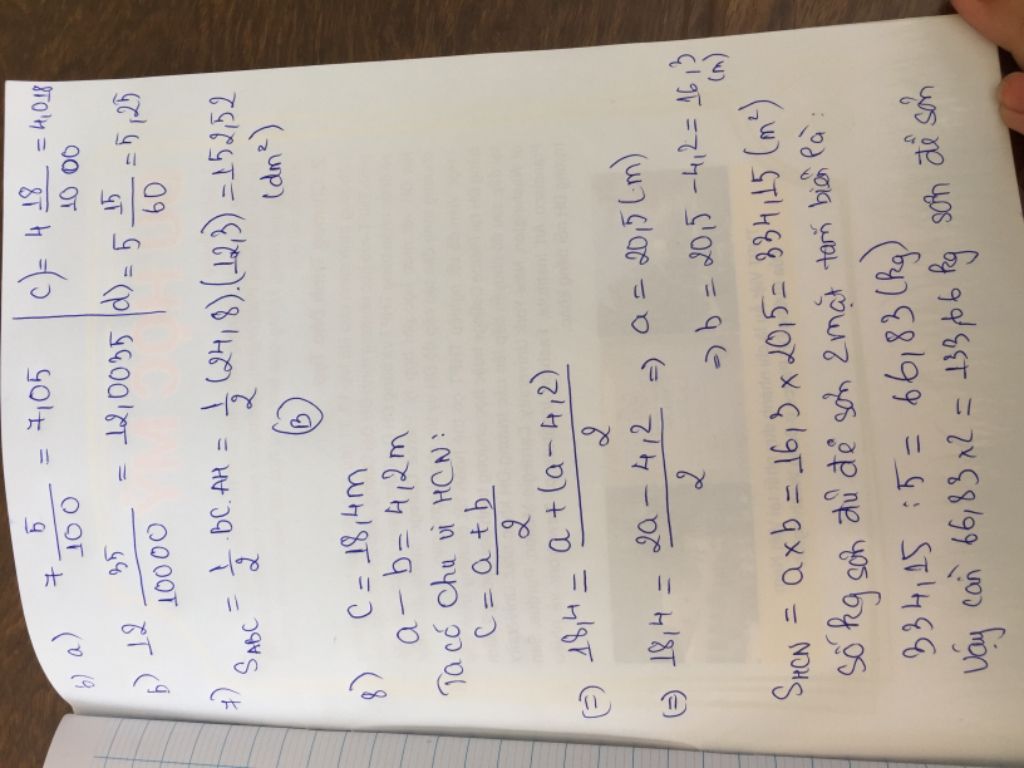 6) a) 7 5/100 = 7,05 | c) = 4 18/1000 = 4,018
b) 12 35/10000 = 12,0035 | d) = 5 15/60 = 5,25
7) SABC = 1/2 . BC.AH = 1/2 (24,8).(12,3) = 152,52
(dm²)
(B)
8) C = 18,4m
a - b = 4,2m
Ta có chu vi HCN:
C = a + b / 2
(=) 18,4 = a + (a - 4,2) / 2
(=) 18,4 = 2a - 4,2 / 2 => a = 20,5 (m)
=> b = 20,5 - 4,2 = 16,3 (m)
SHCN = a x b = 16,3 x 20,5 = 334,15 (m²)
Số kg sơn đủ để sơn 2 mặt tấm biển là:
334,15 : 5 = 66,83 (kg)
Vậy cần 66,83 x 2 = 133,66 kg sơn để sơn